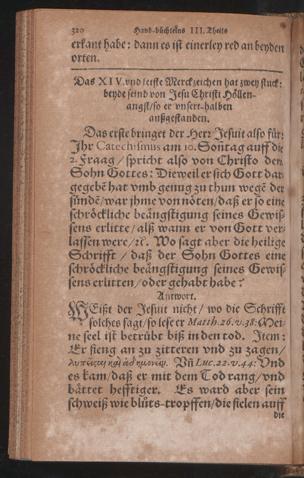 320 Hand-büchleins III. Theils
erkant habe: dann es ist einerley red an beyden
orten.
Das XIV. und letste Merckzeichen hat zwey stuck:
beyde seind von Jesu Christi Höllen-
angst/so er vnsert-halben
außgestanden.
Das erste bringet der Herr Jesuit also für:
Ihr Catechismus am 10. Sontag auff die
2. Fraag / spricht also von Christo dem
Sohn Gottes: Dieweil er sich Gott dar-
gegebē hat vmb genug zu thun wegē der
sünde/war jhme von nöten/daß er so eine
schröckliche beängstigung seines Gewis-
sens erlitte/ alß wann er von Gott ver-
lassen were/ꝛc. Wo sagt aber die heilige
Schrifft / daß der Sohn Gottes eine
schröckliche beängstigung seines Gewis-
sens erlitten/oder gehabt habe?
Antwort.
WEißt der Jesuit nicht/ wo die Schrifft
solches sagt/so lese er Matth. 26. v. 38: Mei-
ne seel ist betrübt biß in den tod. Item:
Er fieng an zu zitteren vnd zu zagen/
λυπεῖσθαι καὶ ἀδημονεῖν. Vñ Luc. 22. v. 44: Vnd
es kam/daß er mit dem Tod rang/vnd
bättet hefftiger. Es ward aber sein
schweiß wie bluts-tropffen/die fielen auff
die